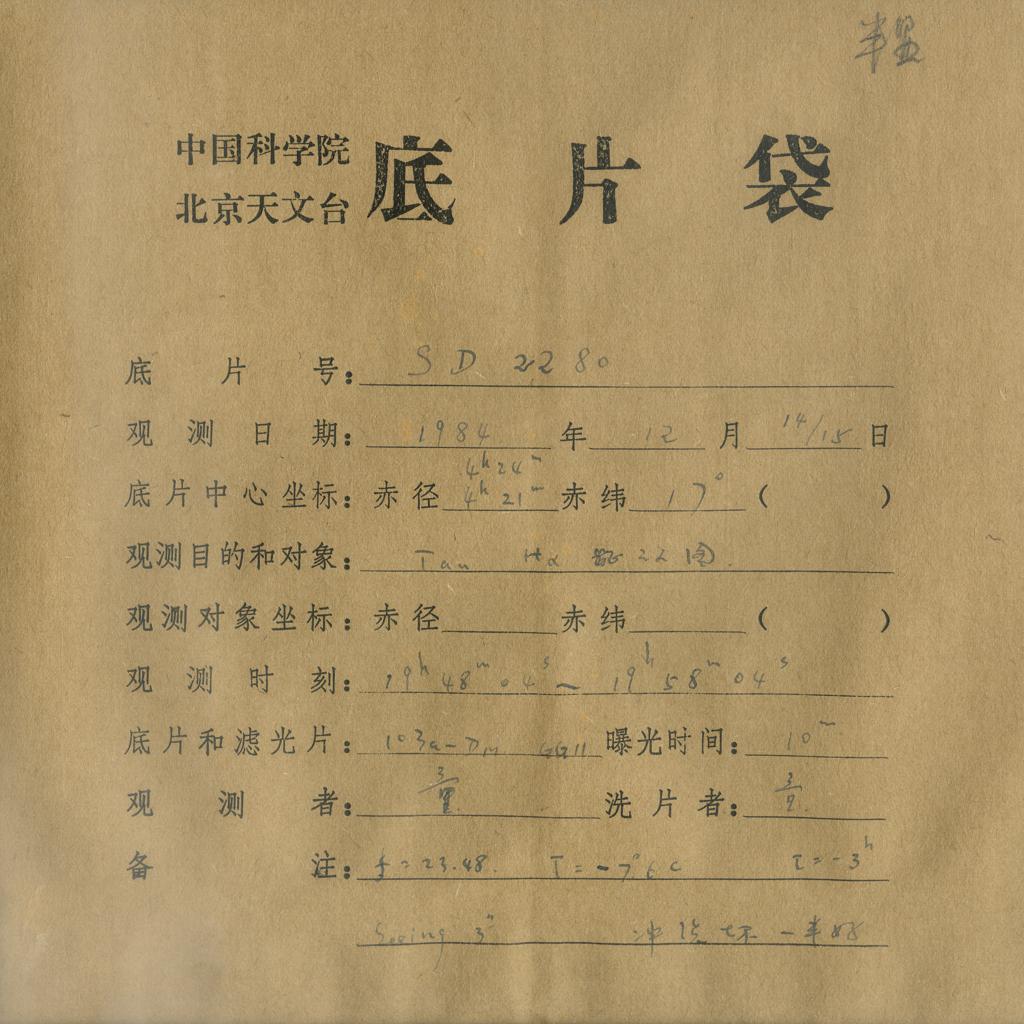 中国科学院
北京天文台 底片袋
底片号：SD 2280
观测日期：1984 年 12 月 14/15 日
4h24m
底片中心坐标：赤径 4h 21m 赤纬 17° （ ）
观测目的和对象：Tau Hα 22
观测对象坐标：赤径 赤纬 （ ）
观测时刻：19h 48m 04s ~ 19h 58m 04s
底片和滤光片：103a-D GG11 曝光时间：10m
观测者： 洗片者：
备注：f=23.48. T=-7°6 C τ=-3h
Seeing 3" 冲 坏 一半好